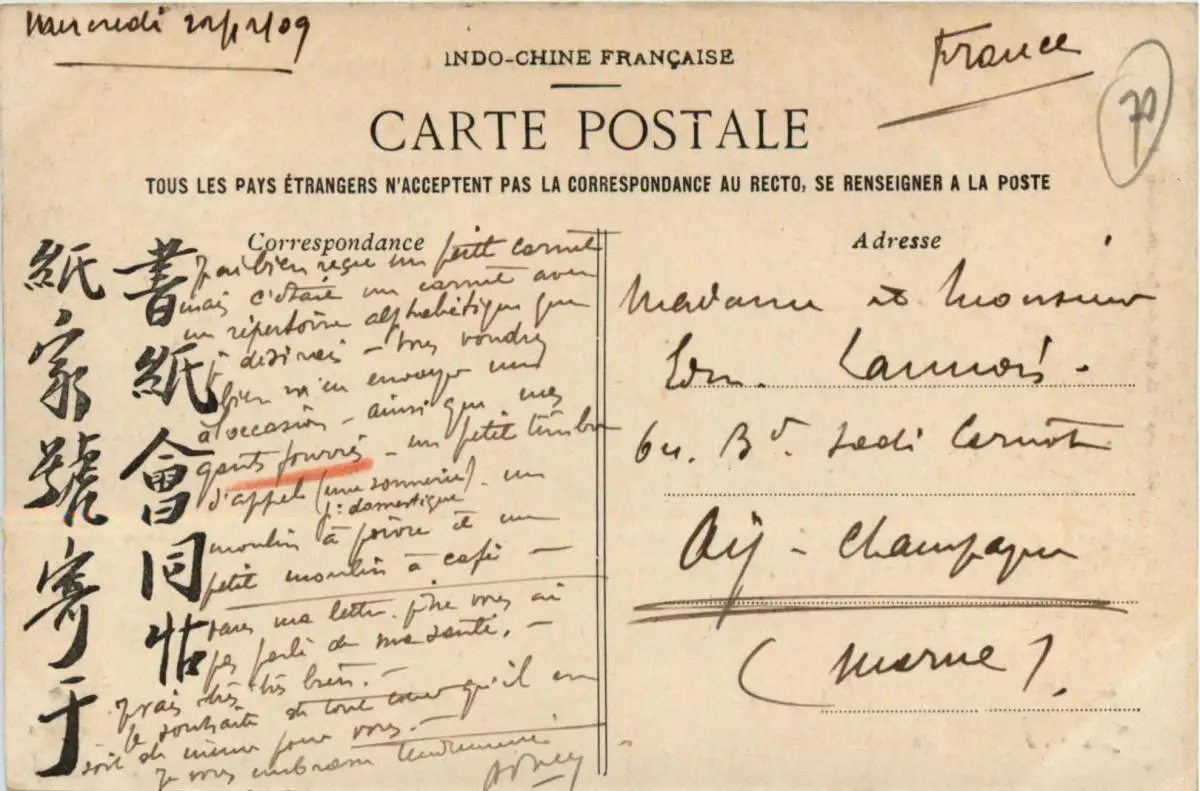 Mercredi 22/12/09
INDO-CHINE FRANÇAISE
France
70
CARTE POSTALE
TOUS LES PAYS ÉTRANGERS N'ACCEPTENT PAS LA CORRESPONDANCE AU RECTO, SE RENSEIGNER A LA POSTE
Correspondance
書紙會同帖
紙家號寄于
J'ai bien reçu un petit carnet
mais c'était un carnet avec
un répertoire alphabétique que
je désirais – vous voudrez
bien m'en envoyer un
à l'occasion – ainsi que mes
gants fourrés – un petit timbre
d'appel (une sonnerie). un
pr domestique
moulin à poivre et un
petit moulin à café –
dans ma lettre je ne vous ai
pas parlé de ma santé. –
Je vais très très bien. –
Je souhaite de tout cœur qu'il en
soit de même pour vous. –
Je vous embrasse tendrement
Adresse
Madame et Monsieur
Edm. Lannois.
64. Bd. Sadi Carnot
Aÿ – Champagne
(Marne).